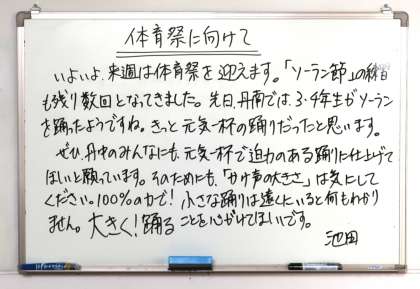 体育祭に向けて
いよいよ、来週は体育祭を迎えます。「ソーラン節」の練習
も残り数回となってきました。先日、丹南では、3・4年生がソーラン
を踊ったようですね。きっと元気一杯の踊りだったと思います。
ぜひ、丹中のみんなにも、元気一杯で迫力のある踊りに仕上げて
ほしいと願っています。そのためにも、「かけ声の大きさ」は気にして
ください。100%の力で！小さな踊りは遠くにいると何もわかり
ません。大きく！踊ることを心がけてほしいです。
池田